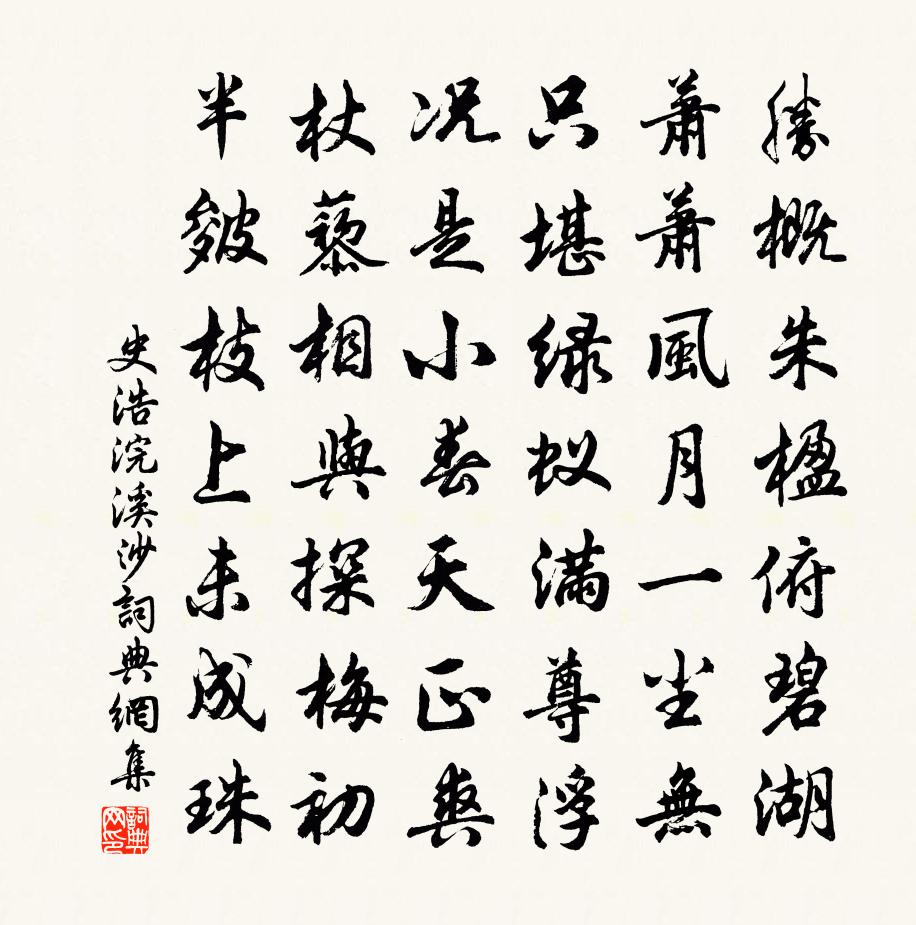 勝概朱楹俯碧湖
蕭蕭風月一尘無
只堪绿蚁满尊浮
况是小春天正爽
杖藜相與探梅初
半皴枝上未成珠
史浩浣溪沙詞典網集
詞典网印